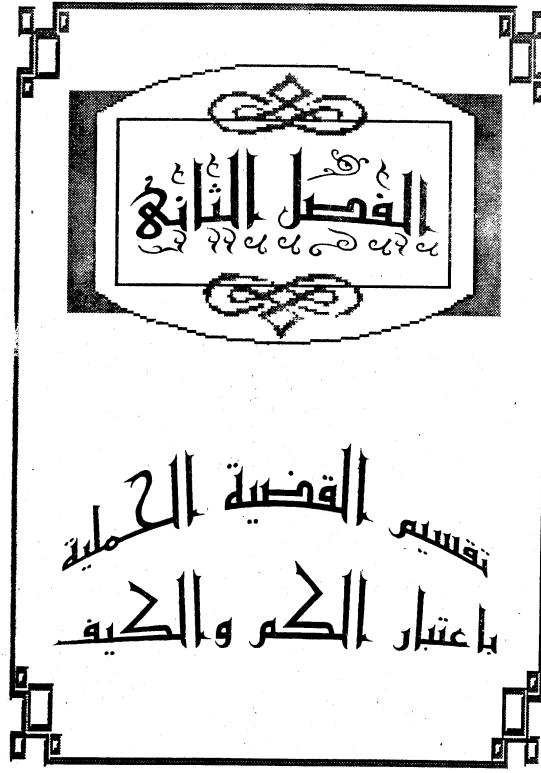 الفصل الثانى
تقسيم القضية الحملية
باعتبار الكم والكيف